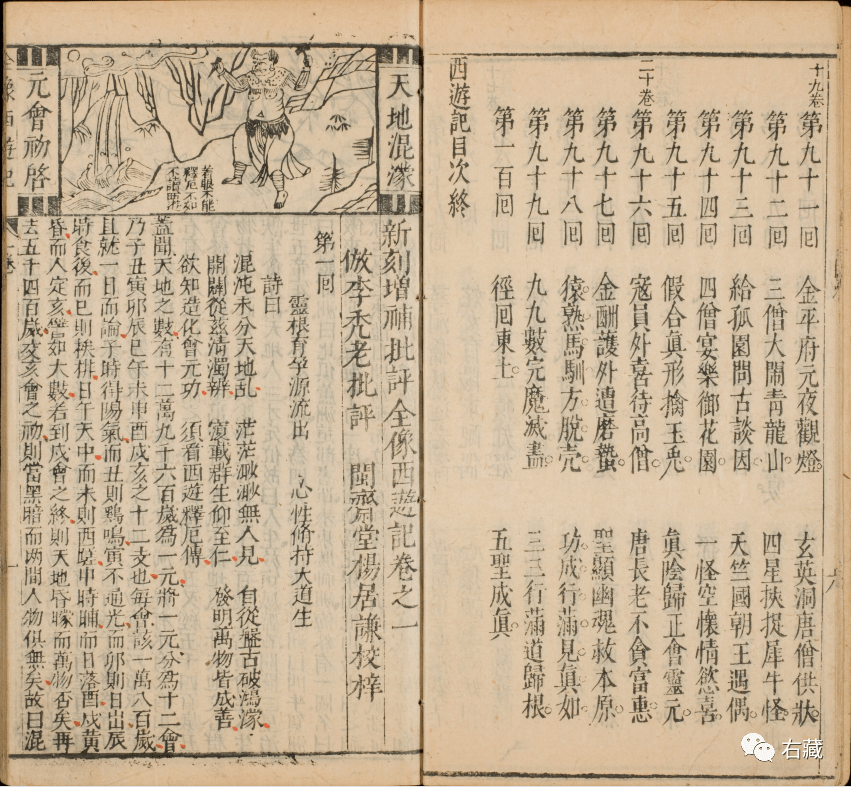 十九卷
第九十一回 金平府元夜觀燈 玄英洞唐僧供狀
第九十二回 三僧大鬧青龍山 四星挾捉犀牛怪
第九十三回 給孤園問古談因 天竺國朝王遇偶
第九十四回 四僧宴樂御花園 一怪空懷情慾喜
第九十五回 假合眞形擒玉兔 眞陰歸正會靈元
二十卷
第九十六回 寇員外喜待高僧 唐長老不貪富惠
第九十七回 金酬護外遭磨蟄 聖顯幽魂救本原
第九十八回 猿熟馬馴方脫壳 功成行滿見眞如
第九十九回 九九數完魔滅盡 三三行滿道歸根
第一百回 徑回東土 五聖成眞
西遊記目次終
天地混濛
元會初啓
新刻增補批評全像西遊記卷之一
倣李禿老批評 閩齋堂楊居謙校梓
第一回
靈根育孕源流出 心性脩持大道生
詩曰
混沌未分天地亂 茫茫渺渺無人見 自從盤古破鴻濛
開闢從茲淸濁辨 覆載群生仰至仁 發明萬物皆成善
欲知造化會元功 須看西遊釋厄傳
蓋聞天地之數有十二萬九千六百歲為一元將一元分為十二會
乃子丑寅卯辰巳午未申酉戌亥之十二支也每會該一萬八百歲
且就一日而論子時得陽氣而丑則鷄鳴寅不通光而卯則日出辰
時食後而巳則挨排日午天中而未則西蹉申時晡而日落酉戌黃
昏而人定亥譬如大數若到戌會之終則天地昏曚而萬物否矣再
去五千四百歲交亥會之初則當黑暗而两間人物俱無矣故曰混
全像西遊記
一卷
右藏